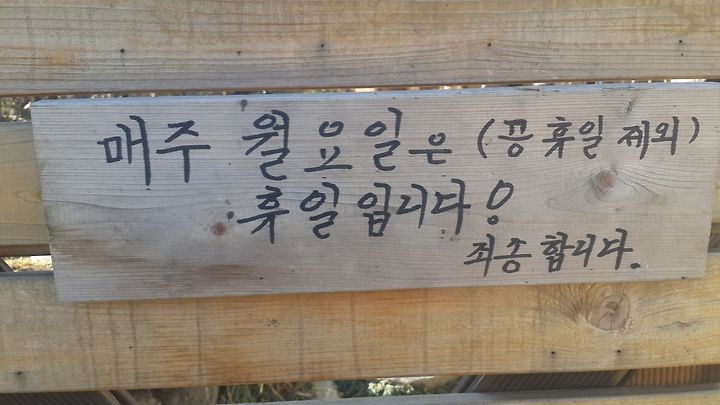 매주 월요일은 (공휴일 제외)
휴일입니다!
죄송합니다.